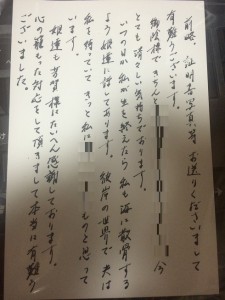 前略、証明書、写真等お送り下さいまして
有難うございます。
御陰様できちんと
とても清々しい気持ちであります。
いつの日か私が生を終えたら私も海に散骨する
よう娘達に話してあります。彼岸の世界で夫は
私を待っていてきっと私に ものと思って
娘達も 様にたいへん感謝しております。
心の籠もった対応をして頂きまして本当に有難う
ございました。